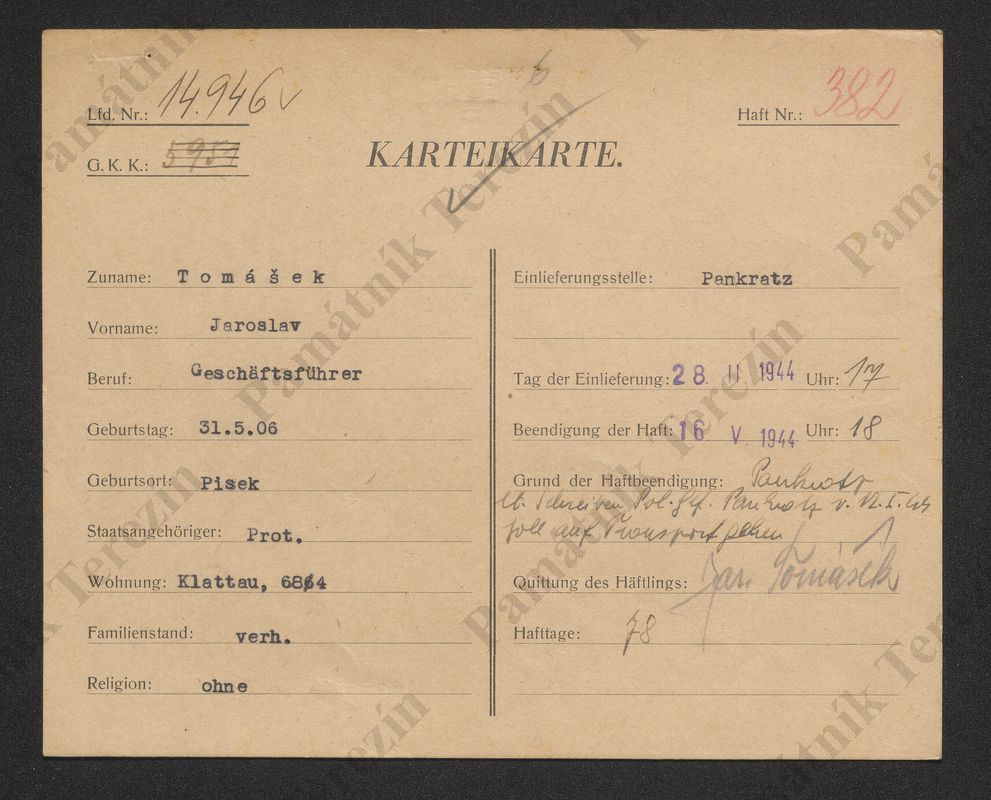 Lfd. Nr.: 14.946
Haft Nr.: 382
G. K. K.:
KARTEIKARTE.
Zuname: Tomášek
Vorname: Jaroslav
Beruf: Geschäftsführer
Geburtstag: 31.5.06
Geburtsort: Pisek
Staatsangehöriger: Prot.
Wohnung: Klattau, 68
Familienstand: verh.
Religion: ohne
Einlieferungsstelle: Pankratz
Tag der Einlieferung: 28. II. 1944 Uhr: 17
Beendigung der Haft: 16 V. 1944 Uhr: 18
Grund der Haftbeendigung: Pankratz
lt. Schreiben Pol. Gef. Pankratz v.
soll auf Transport gehen
Quittung des Häftlings: Jar. Tomášek
Hafttage: 78
Památník Terezín